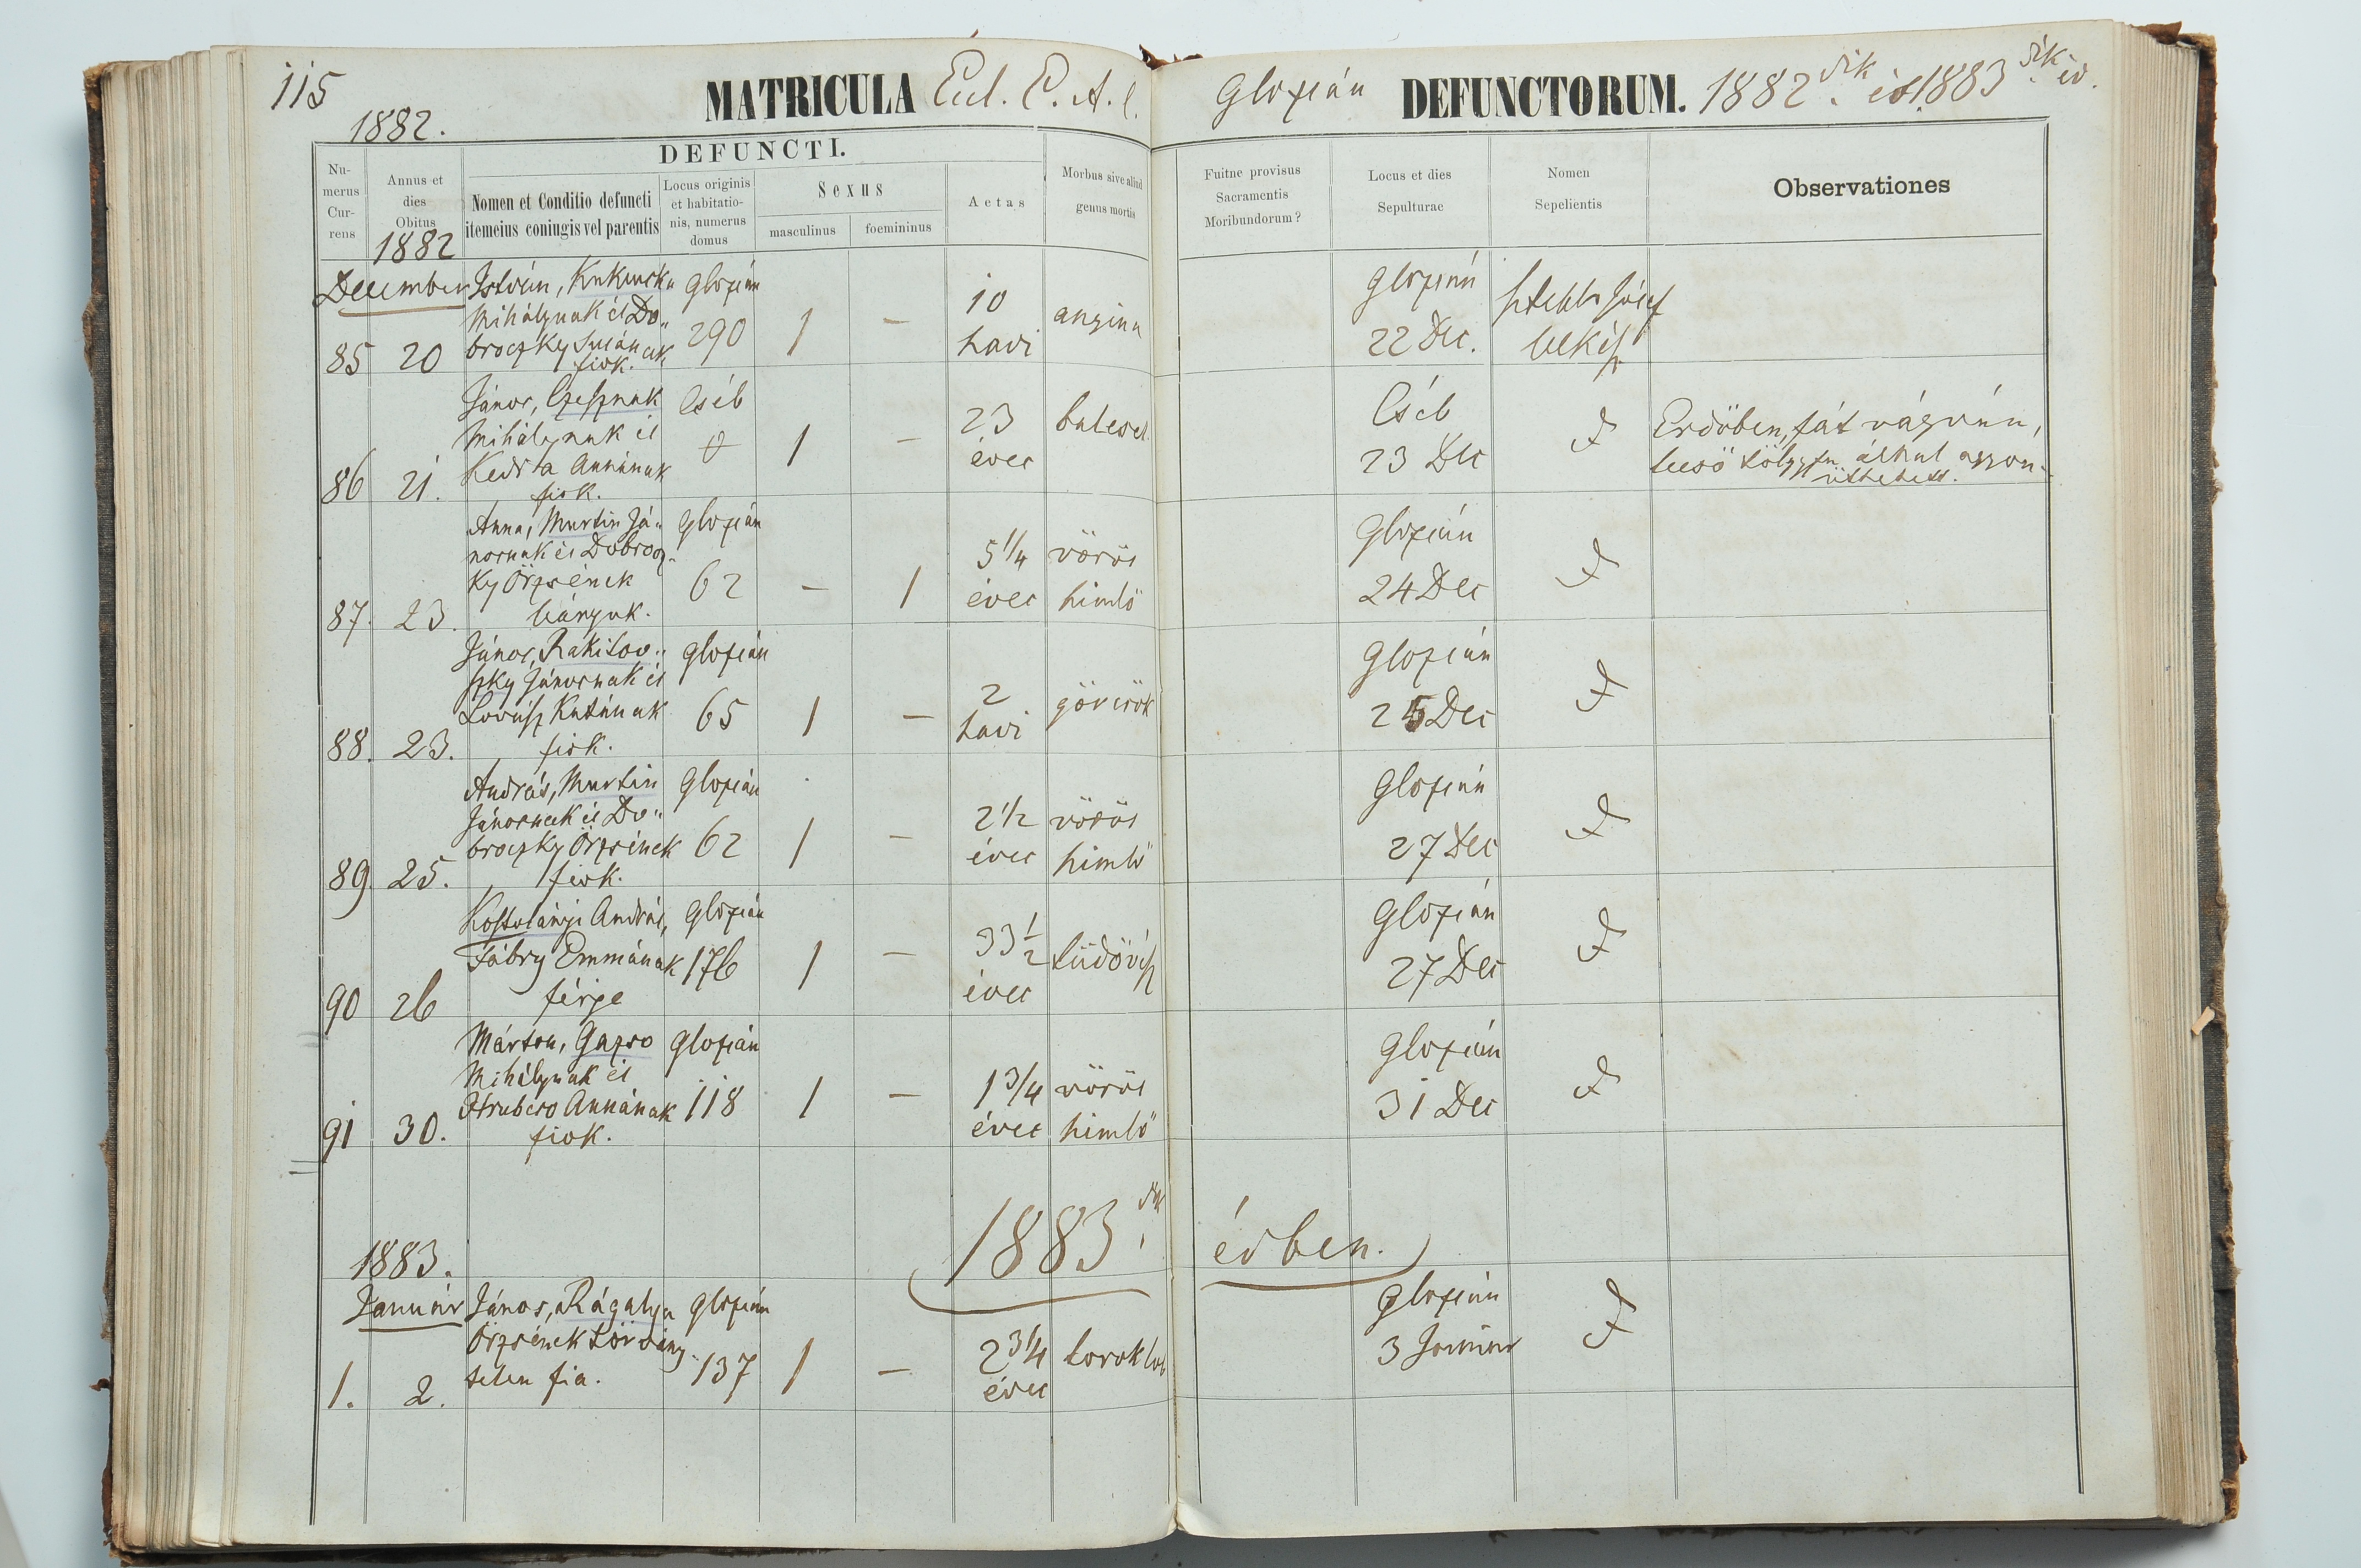 115
1882.
MATRICULA Eccl. C. A. l. Glozsán DEFUNCTORUM. 1882 dik és 1883 dik év.
DEFUNCTI.
Numerus Currens
Annus et dies Obitus
Nomen et Conditio defuncti itemeius coniugis vel parentis
Locus originis et habitationis, numerus domus
Sexus
masculinus
foemininus
Aetas
Morbus sive aliud genus mortis
Fuitne provisus Sacramentis Moribundorum?
Locus et dies Sepulturae
Nomen Sepelientis
Observationes
1882
December
István, Kukucska Glozsán
Mihálynak és Do„
broczky Zsuzsának
fiok.
85 20 290 1 – 10 havi angina
Glozsán 22 Dec. József
János, Mihálynak és
Kedra Annának
fiok.
86 21. Cséb 1 – 23 éves baleset
Cséb 23 Dec
Erdőben, fát vágván,
leeső tölgyfa által agyon„
üttetett.
Anna, Martin Já„
nosnak és Dobrocz„
ky Örzsének
leányuk.
87. 23. Glozsán 62 – 1 5 1/4 éves vörös himlő
Glozsán 24 Dec
János, Rakitov„
szky Jánosnak és
Lovász Katának
fiok.
88. 23. Glozsán 65 1 – 2 havi görcsök
Glozsán 25 Dec
András, Martin
Jánosnak és Do„
broczky Örzsének
fiok.
89. 25. Glozsán 62 1 – 2 1/2 éves vörös himlő
Glozsán 27 Dec
Kosztolányi András,
Fábry Emmának
férje
90 26 Glozsán 176 1 – 33 1/2 éves tüdővész
Glozsán 27 Dec
Márton, Gazso
Mihálynak és
Hrubcso Annának
fiok.
91 30. Glozsán 118 1 – 1 3/4 éves vörös himlő
Glozsán 31 Dec
1883 dik évben.
1883.
Január
János, Rágalya
Örzsének törvény„
telen fia.
1. 2. Glozsán 137 1 – 2 3/4 éves toroklob
Glozsán 3 Január